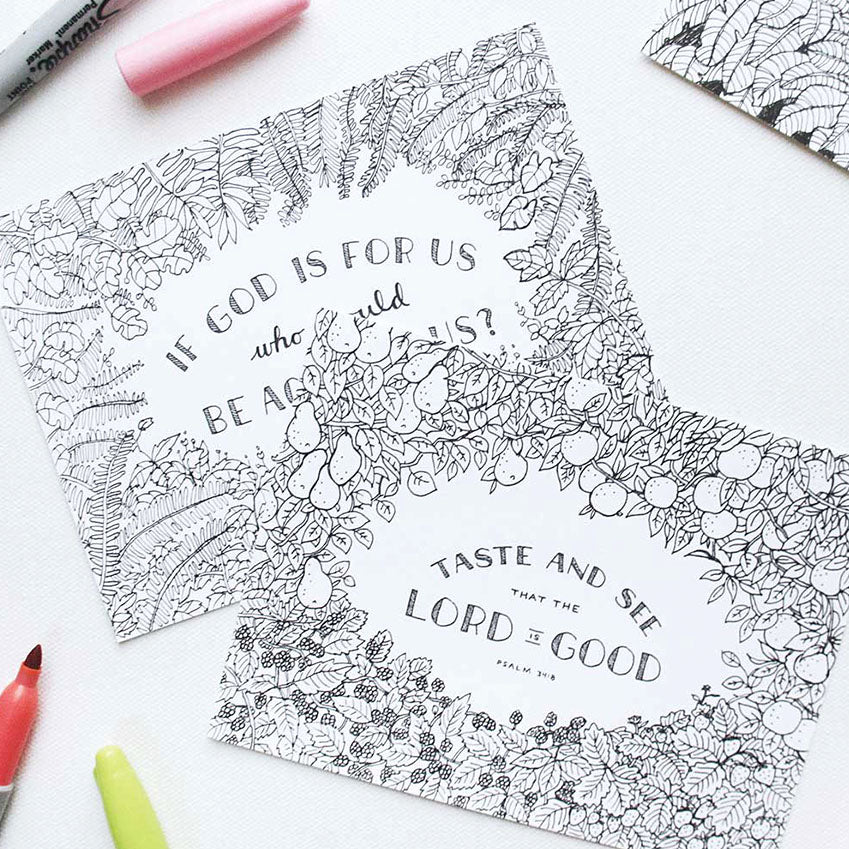 Sharpie
Permanent
Marker
IF GOD IS FOR US
who uld
BE AG US?
TASTE AND SEE
THAT THE
LORD IS GOOD
PSALM 34:8